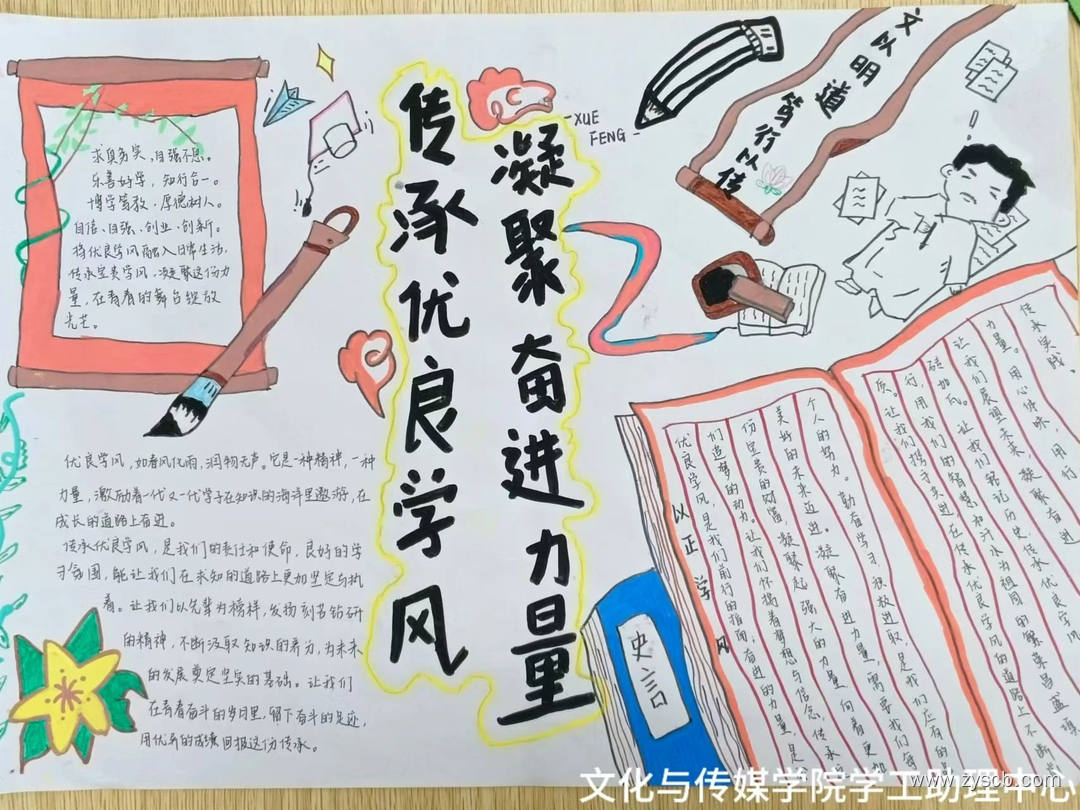 传承优良学风
凝聚奋进力量
XUE
FENG
文以明道
笃行以传
求真务实,自强不息。
乐善好学,知行合一。
博学笃教,厚德树人。
自信、自强、创业、创新。
将优良学风融入日常生活,
传承宝贵学风,凝聚这份力
量,在青春的舞台绽放
光芒。
优良学风,如春风化雨,润物无声。它是一种精神,一种
力量,激励着一代又一代学子在知识的海洋里遨游,在
成长的道路上奋进。
传承优良学风,是我们的责任和使命,良好的学
习氛围,能让我们在求知的道路上更加坚定与执
着。让我们以先辈为榜样,发扬刻苦钻研
的精神,不断汲取知识的养分,为未来
的发展奠定坚实的基础。让我们
在青春奋斗的岁月里,留下奋斗的足迹,
用优秀的成绩回报这份传承。
以正学风
优良学风,是我们前行的指南,奋进的力量,是
们追梦的动力。让我们怀揣着梦想与信念,传承
份宝贵的财富,凝聚起强大的力量,向着更加
美好的未来迈进。凝聚奋进力量,需要我们每
个人的努力。勤奋学习,积极进取,是我们应有的
质。让我们携手共进,在传承优良学风的道路上,不断
行,用我们的智慧和汗水为祖国的繁荣昌盛添
砖加瓦。让我们铭记历史,传承优良学风
让我们展望未来,凝聚奋进
力量。用心体味,用行
传承实践。
史言
文化与传媒学院学工助理中心
www.zyscb.com